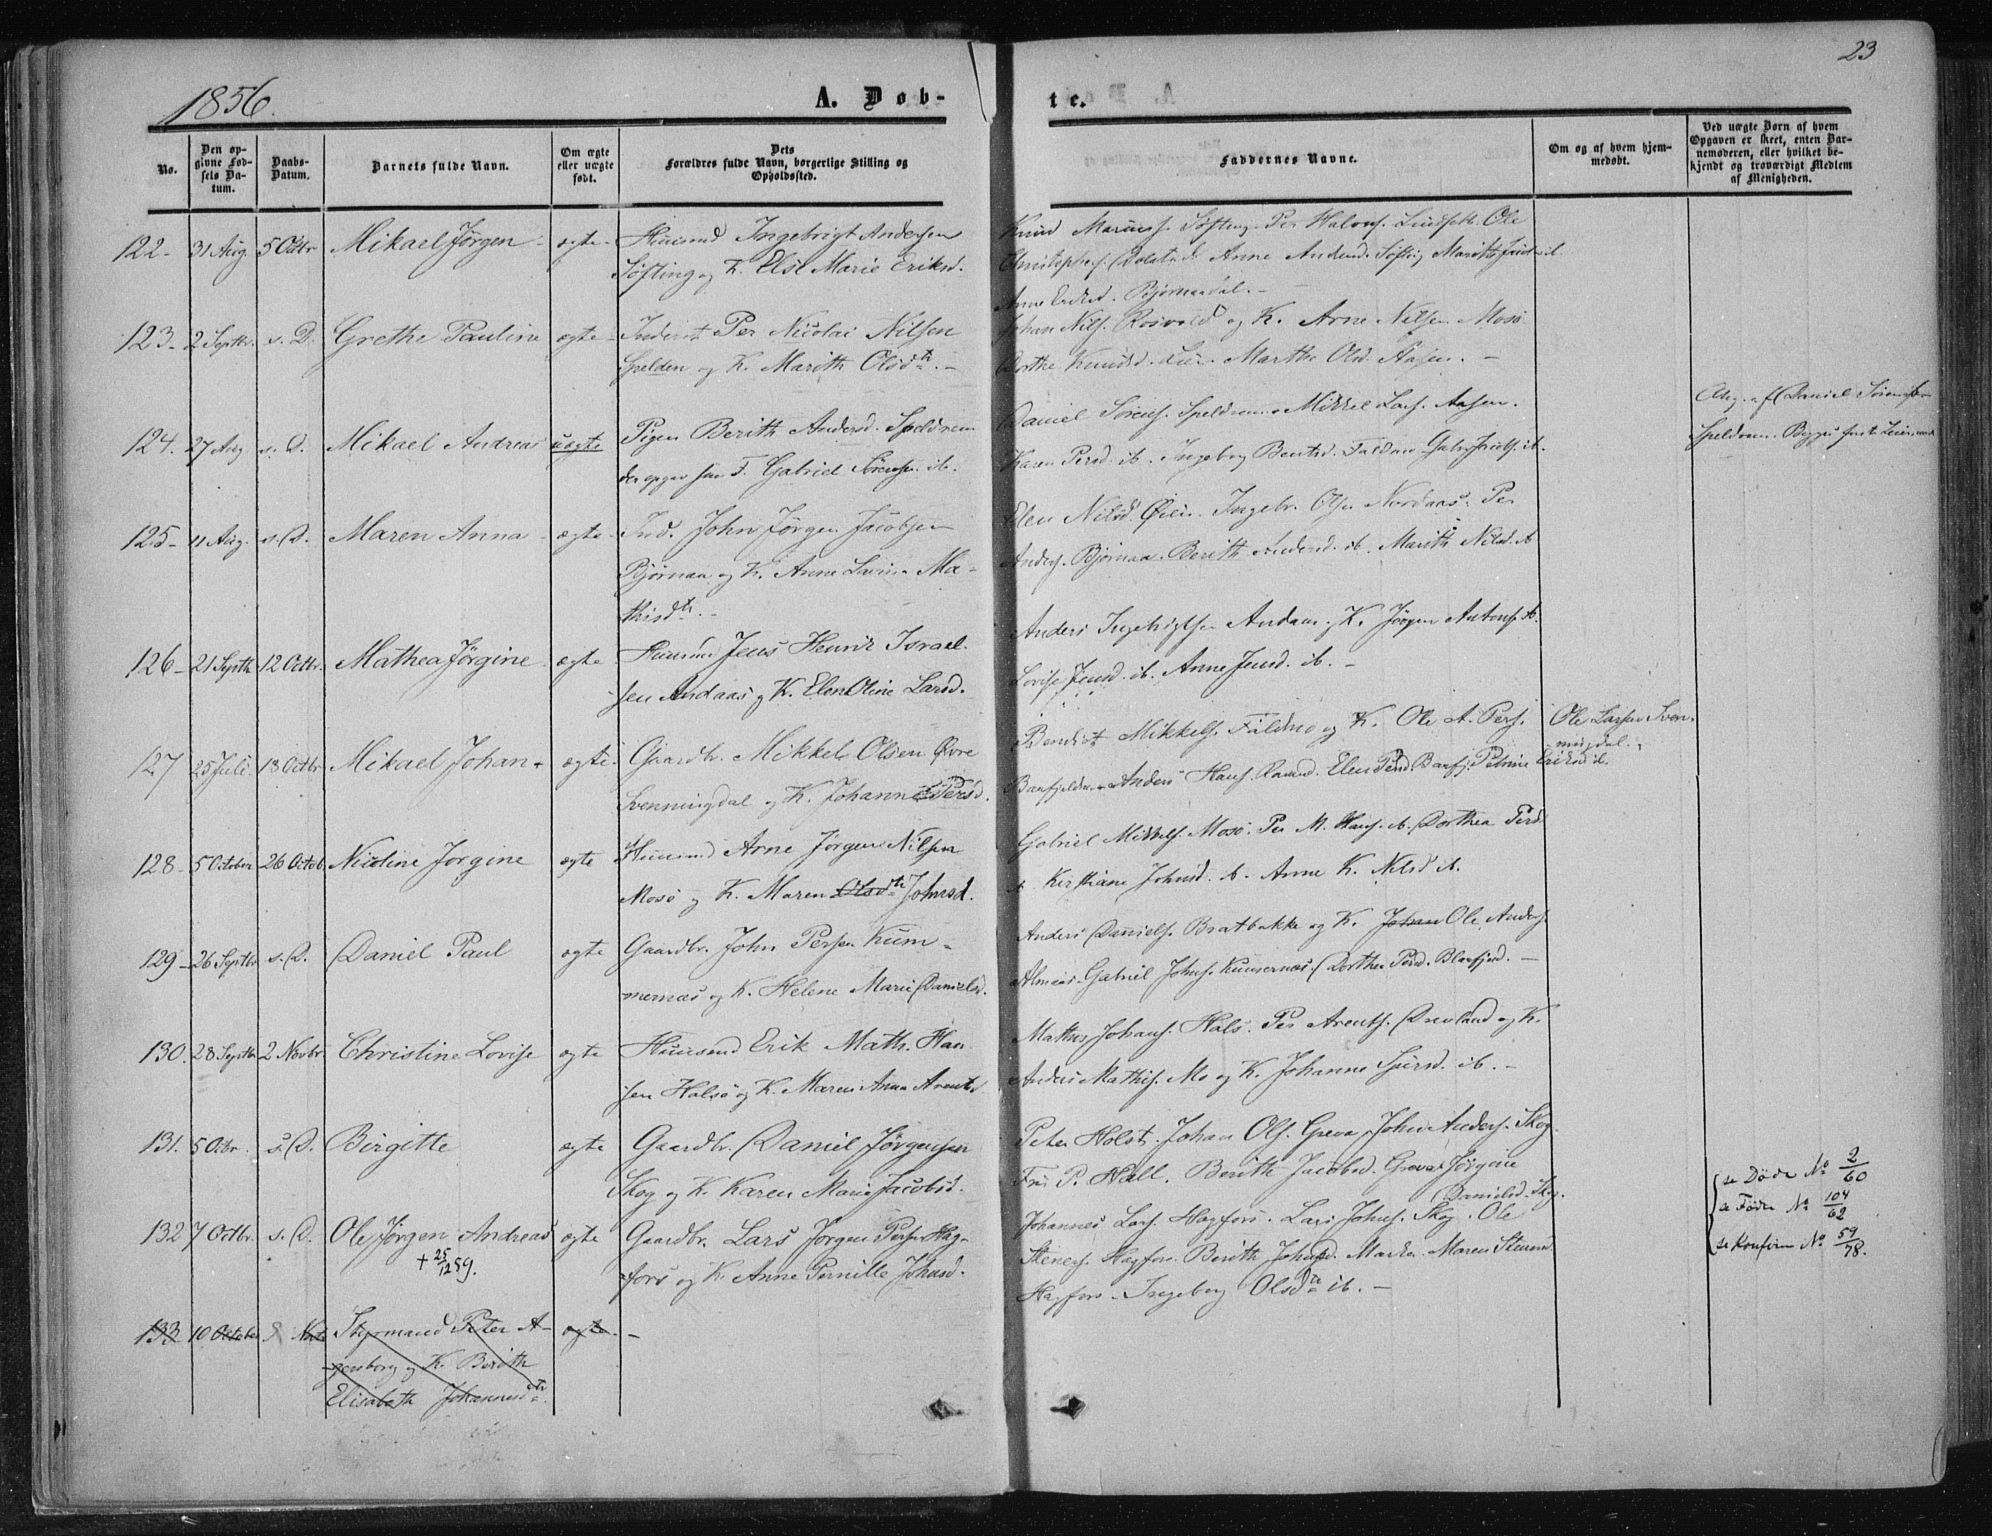 1856.
A. Døb-
te.
23
No.
Den op-
givne Fød-
sels Da-
tum.
Daabs-
Datum.
Barnets fulde Navn.
Om ægte
eller uægte
født.
Dets
Forældres fulde Navn, borgerlige Stilling og
Opholdssted.
Faddernes Navne.
Om og af hvem hjem-
medøbt.
Ved uægte Børn af hvem
Opgaven er skeet, enten Bar-
nemoderen, eller hvilket be-
kjendt og troværdigt Medlem
af Menigheden.
122- 31 Aug. 5 Octbr Mikael Jörgen - ægte- Huusmd Ingebrigt Andersen
Söfting og K. Else Marie Eriksd.
Knud Söfting. Per Ole
Anne Andersd. Söfting
Anne Bjørnaadal. -
123- 2 Septbr. s. D. Grethe Pauline ægte- Inderst Per Nicolai Nilsen
Spelden og K. Marith Olsdtr. -
Johan Nils. Rosvold og K. Arne Nilsen Mosö
Dorthe Knudsd. Marthe Olsd. Aasen. -
124. 27 Aug s. D. Mikael Andreas uægte Pigen Berith Andersd. Speldrem
der opgav som F. Gabriel Sörens. ib.
Daniel Sörens. Speldrem. Mikkel Lars. Aasen.
Karen Persd. ib. Ingeborg Bentsd.
Ang. af Daniel Sörensen
Speldrem. Begges
125- 11 Aug. s. D. Maren Anna - ægte- Ind. John Jörgen Jacobsen
Bjørnaa og K. Anne Ma-
thisdtr. -
Elen Nilsd. Øien. Ingebr. Olsen Nordaas. Per
Anders. Bjørnaa. Berith Andersd. ib. Marith Nilsd. ib
126- 21 Septb. 12 Octbr. Mathea Jörgine ægte - Huusmd Jens Henrik Israel-
sen Andaas og K. Elen Oline Larsd.
Anders Ingebrigtsen Andaas. og K. Jörgen Antons. ib.
Lovise Jensd. ib. Anne Jensd. ib. -
127 25 Juli. 18 Octbr Mikael Johan - ægte. Gaardbr. Mikkel Olsen Øvre
Svenningdal og K. Johanne Persd.
Bendikt Mikkels. og K. Ole A. Pers.
Baafjeldmo. Anders Hans. Elen Persd. Baafj. Petrine Eriksd. ib.
Ole Larsen Sven-
ningdal.
128- 5 October 26 Octob. Nicoline Jörgine ægte Huusmd Arne Jörgen Nilsen
Mosö og K. Maren Olsdtr Johnsd.
Gabriel Mikkels. Mosö. Per M. Hans. ib. Dorthea Persd.
ib Kirstiane Johnsd. ib. Anne K. Nilsd ib.
129- 26 Septbr s. D. Daniel Paul ægte Gaardbr. John Persen Kum-
mernæs og K. Helene Marie Danielsd.
Anders Daniels. Bratbakke og K. Johan Ole Anders.
Almaas. Gabriel Johns. Kummernæs. Dorthea Persd. Blaafjeld. -
130. 28 Septbr 2 Novbr. Christine Lovise ægte Huusmd Erik Maths. Han-
sen Halsö og K. Maren Anna Arentsd.
Mathis Johans. Hals. Per Arents. og K.
Anders Mathis. Mo og K. Johanne Sjursd. ib. -
131. 5 Octbr. s. D. Birgitte ægte Gaardbr. Daniel Jörgensen
Skog og K. Karen Marie Jacobsd.
Peter Holst. Johan Ols. Greva. John Anders. Skog.
Fru P. Hall. Berith Jacobsd. Greva. Jörgine
Danielsd. Skog.
132 7 Octbr. s. D. Ole Jörgen Andreas ægte Gaardbr. Lars Jörgen Persen Hag-
+ 25/12 89.
fors og K. Anne Pernille Johnsd.
Johannes Lars. Hagfors. Lars Johns. Skog. Ole
Steners. Hagfors. Berith Johnsd. Marken. Maren Stenersd.
Hagfors. Ingeborg Olsdtr ib. -
se Døde No 2/60
se Fødte No 104/62
se Konfirm No 59/78.
133 10 October 9 Novb Styrmand Peter A-
genborg og K. Berith
Elisabeth Johannesdtr.
ægte. -